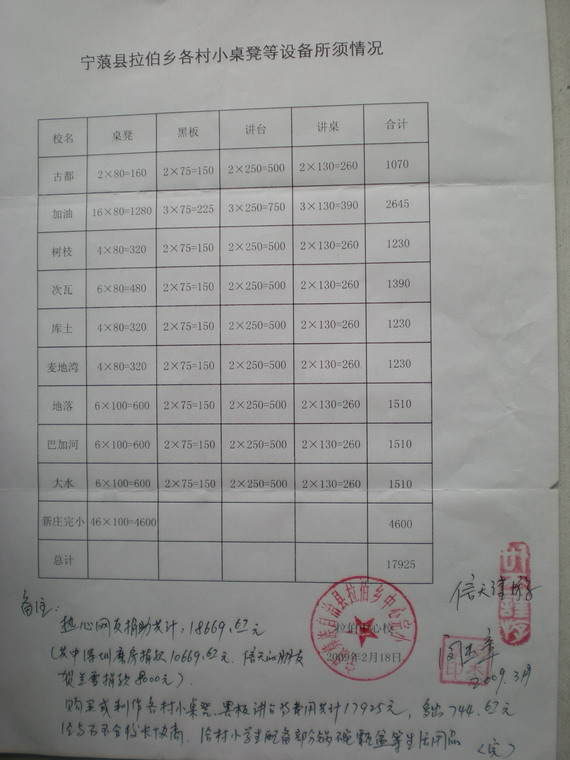 宁蒗县拉伯乡各村小桌凳等设备所须情况
校名 桌凳 黑板 讲台 讲桌 合计
古都 2×80=160 2×75=150 2×250=500 2×130=260 1070
加油 16×80=1280 3×75=225 3×250=750 3×130=390 2645
树枝 4×80=320 2×75=150 2×250=500 2×130=260 1230
次瓦 6×80=480 2×75=150 2×250=500 2×130=260 1390
库土 4×80=320 2×75=150 2×250=500 2×130=260 1230
麦地湾 4×80=320 2×75=150 2×250=500 2×130=260 1230
地落 6×100=600 2×75=150 2×250=500 2×130=260 1510
巴加河 6×100=600 2×75=150 2×250=500 2×130=260 1510
大水 6×100=600 2×75=150 2×250=500 2×130=260 1510
新庄完小 46×100=4600 4600
总计 17925
备注:
热心网友捐助共计:18669.62元
(其中深圳磨房捐款10669.62元、信天的朋友
贺兰雪捐款8000元)
购买或制作各村小桌凳、黑板讲台等费用共计17925元,多出744.62元
给村小学生配备部分锅碗瓢盆等生活用品
(完)
拉伯中心校
2009年2月18日
自治县拉伯乡中心完小
信天
2009.3月